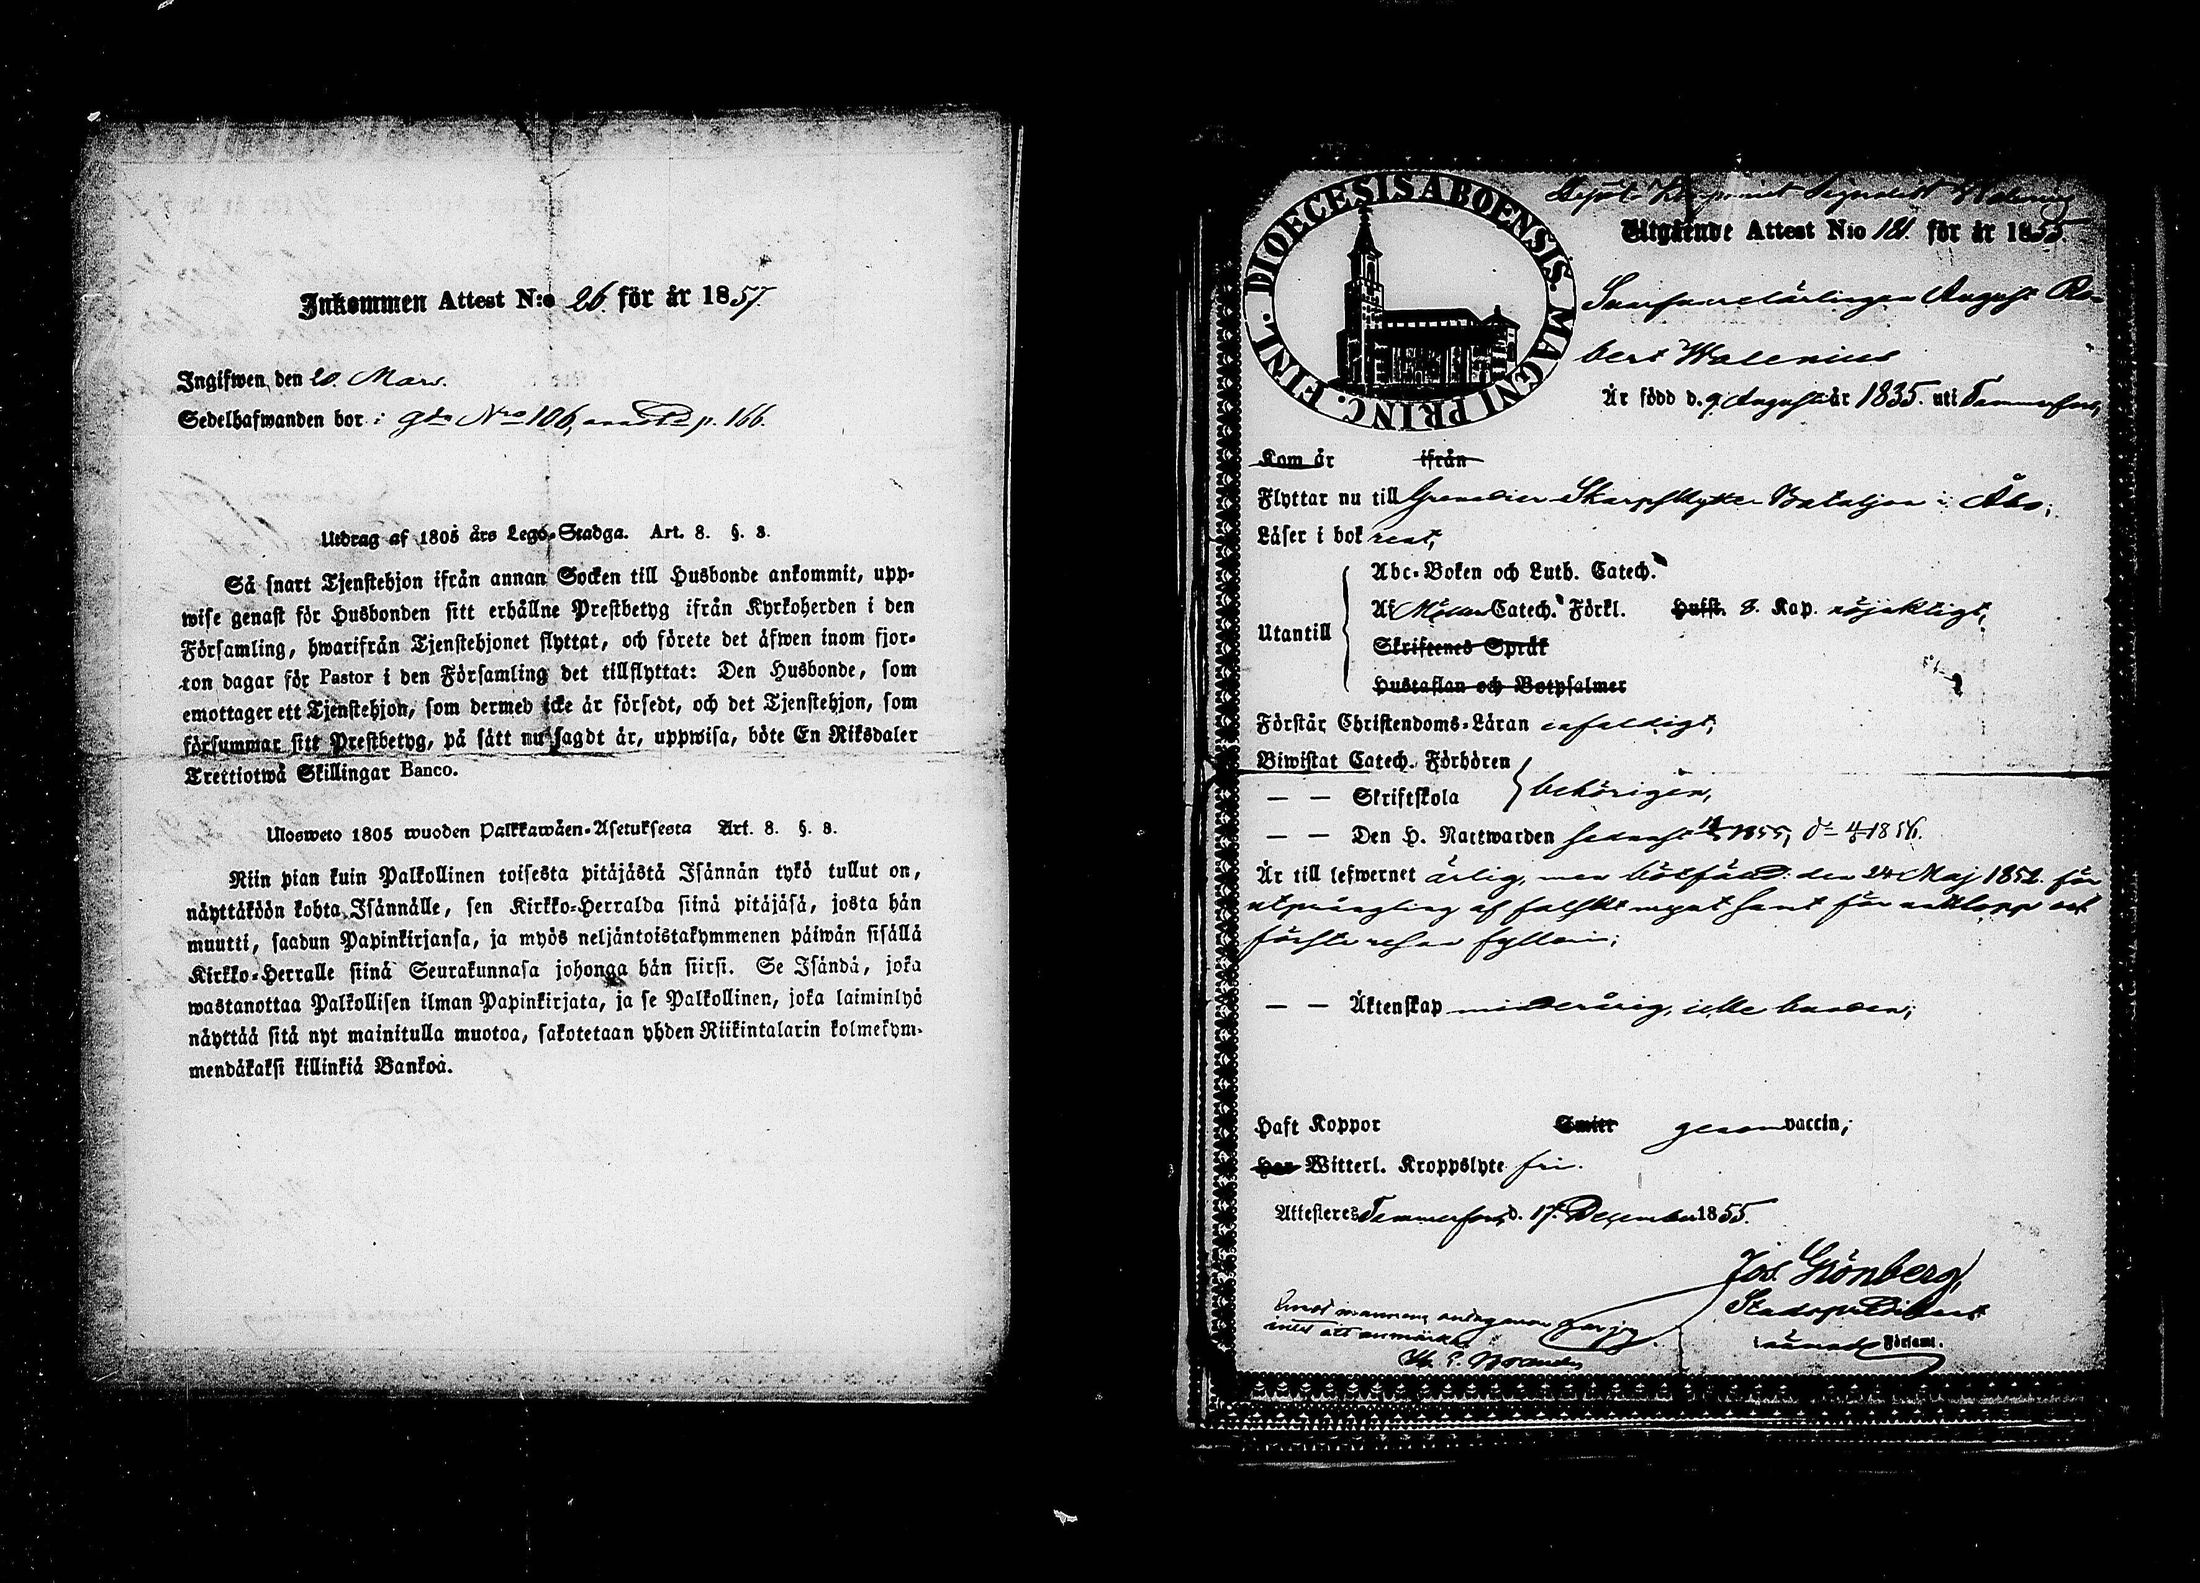 Inkommen Attest N:o 26. för år 1857.
Ingifwen den 20. Mars.
Sedelhafwanden bor i gdn Nro 106, p. 166.
Utdrag af 1805 års Lego-Stadga. Art. 8. §. 8.
Så snart Tjenstehjon ifrån annan Socken till Husbonde ankommit, upp-
wise genast för Husbonden sitt erhållne Prestbetyg ifrån Kyrkoherden i den
Församling, hwarifrån Tjenstehjonet flyttat, och förete det äfwen inom fjor-
ton dagar för Pastor i den Församling det tillflyttat: Den Husbonde, som
emottager ett Tjenstehjon, som dermed icke är försedt, och det Tjenstehjon, som
försummar sitt Prestbetyg, på sätt nu sagdt är, uppwisa, böte En Riksdaler
Trettiotwå Skillingar Banco.
Ulosweto 1805 wuoden Palkkawäen-Asetuksesta Art. 8. §. 8.
Niin pian kuin Palkollinen toisesta pitäjästä Isännän tykö tullut on,
näyttäköön kohta Isännälle, sen Kirkko-Herralda siinä pitäjäsä, josta hän
muutti, saadun Papinkirjansa, ja myös neljäntoistakymmenen päiwän sisällä
Kirkko-Herralle siinä Seurakunnasa johonga hän siirsi. Se Isändä, joka
wastanottaa Palkollisen ilman Papinkirjata, ja se Palkollinen, joka laiminlyö
näyttää sitä nyt mainitulla muotoa, sakotetaan yhden Riikintalarin kolmekym-
mendäkaksi killinkiä Bankoa.
FINL. DIOECESIS ABOENSIS. MAGNI PRINC.
Utgående Attest N:o 181. för år 1855.
August Ro-
bert Walenius
Är född d. 9 Augusti år 1835. uti Tammerfors,
Kom år ifrån
Flyttar nu till Grenadier Skarpskytte Bataljon i Åbo;
Läser i bok rent,
Abc-Boken och Luth. Catech.
Utantill Af Catech. Förkl. Husst. 8. Kap. nöjaktigt,
Skriftenes Språk
Hustaflan och Botpsalmer
Förstår Christendoms-Läran enfaldigt,
Biwistat Catech. Förhören
— — Skriftskola behörigen,
— — Den H. Nattwarden senast 1855,
Är till lefwernet ärlig, men bötfäld den 24 Maj 1852. för
utprångling af falskt mynt samt för och
första resan fylleri;
— — Äktenskap minderårig, icke bunden;
Haft Koppor Smitt genom vaccin;
Har Witterl. Kroppslyte fri.
Attesteres Tammerfors d. 17. December 1855.
Jos. Grönberg,
Stadspredikant
i nämnde Församl.